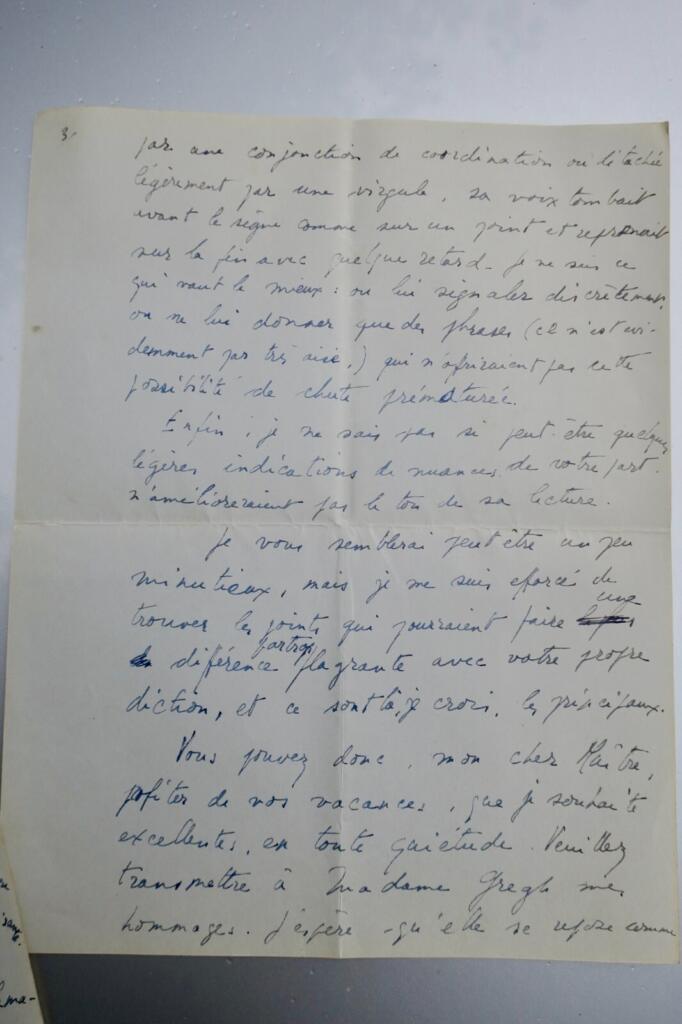 3.
par une conjonction de coordination ou détachée
légèrement par une virgule, sa voix tombait
avant le signe comme sur un point et reprenait
sur la fin avec quelque retard. Je ne sais ce
qui vaut le mieux : ou lui signaler discrètement,
ou ne lui donner que des phrases (ce n'est évi-
demment pas très aisé,) qui n'offriraient pas cette
possibilité de chute prématurée.
Enfin, je ne sais pas si peut-être quelques
légères indications de nuances de votre part
n'amélioreraient pas le ton de sa lecture.
Je vous semblerai peut être un peu
minutieux, mais je me suis efforcé de
trouver les points qui pourraient faire une
différence par trop flagrante avec votre propre
diction, et ce sont là, je crois, les principaux.
Vous pouvez donc, mon cher Maître,
profiter de vos vacances, que je souhaite
excellentes, en toute quiétude. Veuillez
transmettre à Madame Gregh mes
hommages. J'espère qu'elle se repose comme